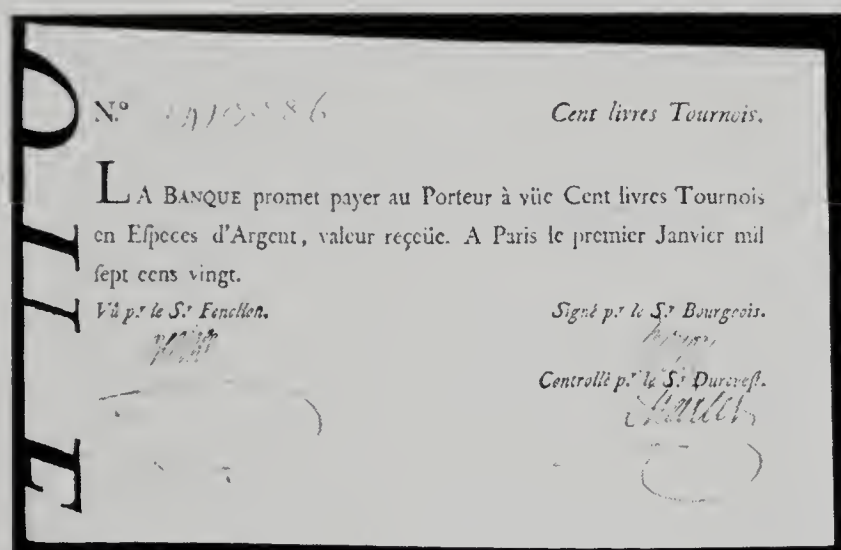 N.º Cent livres Tournois.
LA BANQUE promet payer au Porteur à vüe Cent livres Tournois
en Eſpeces d'Argent, valeur reçeüe. A Paris le premier Janvier mil
ſept cens vingt.
Vû p.r le S.r Fenellon. Signé p.r le S.r Bourgeois.
Controllé p.r le S.r Dureveſt.